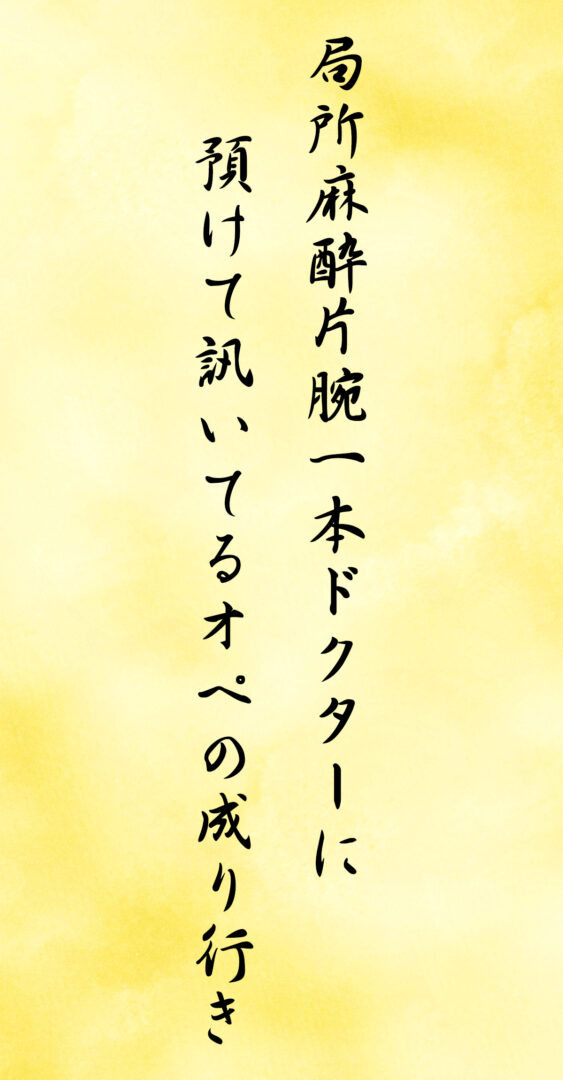 局所麻酔片腕一本ドクターに
預けて訊いてるオペの成り行き